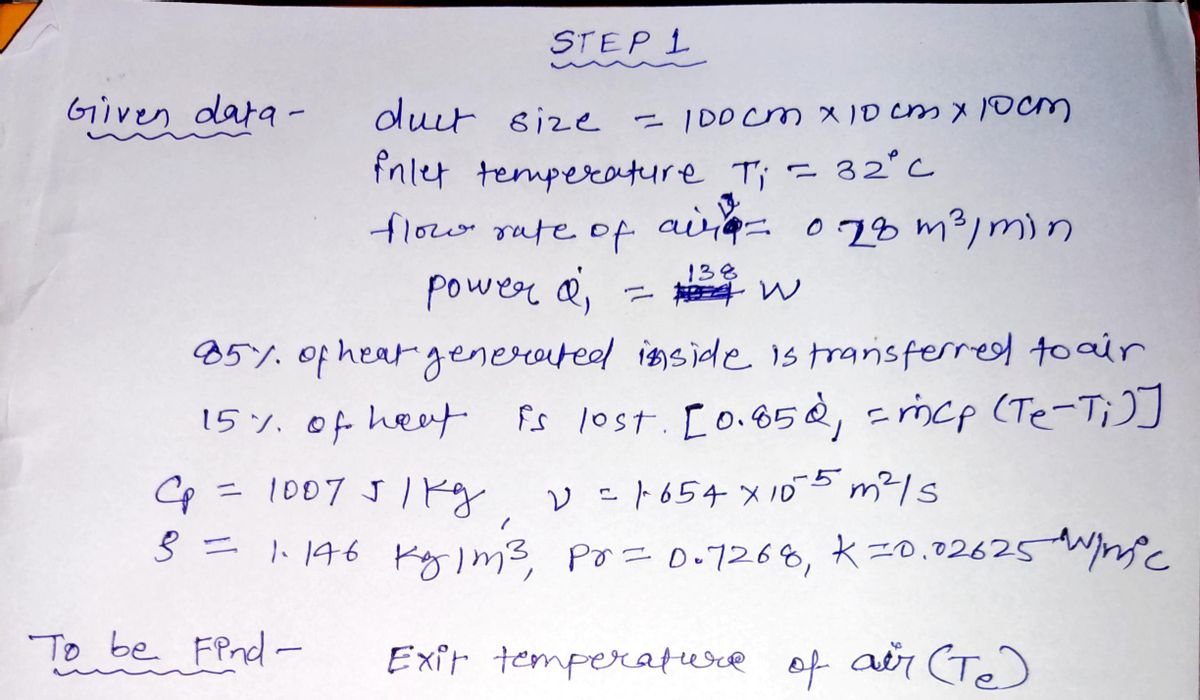 STEP 1
Given data - duct size = 100cm x 10 cm x 10cm
inlet temperature Ti = 32°C
flow rate of air = 0.78 m³/min
power Q̇, = 138 W
85%. of heat generated inside is transferred to air
15%. of heat is lost. [0.85Q̇, = ṁcp (Te-Ti)]
Cp = 1007 J/kg, ν = 1.654 x 10⁻⁵ m²/s
ρ = 1.146 Kg/m³, Pr = 0.7268, k = 0.02625 W/m°c
To be Find - Exit temperature of air (Te)